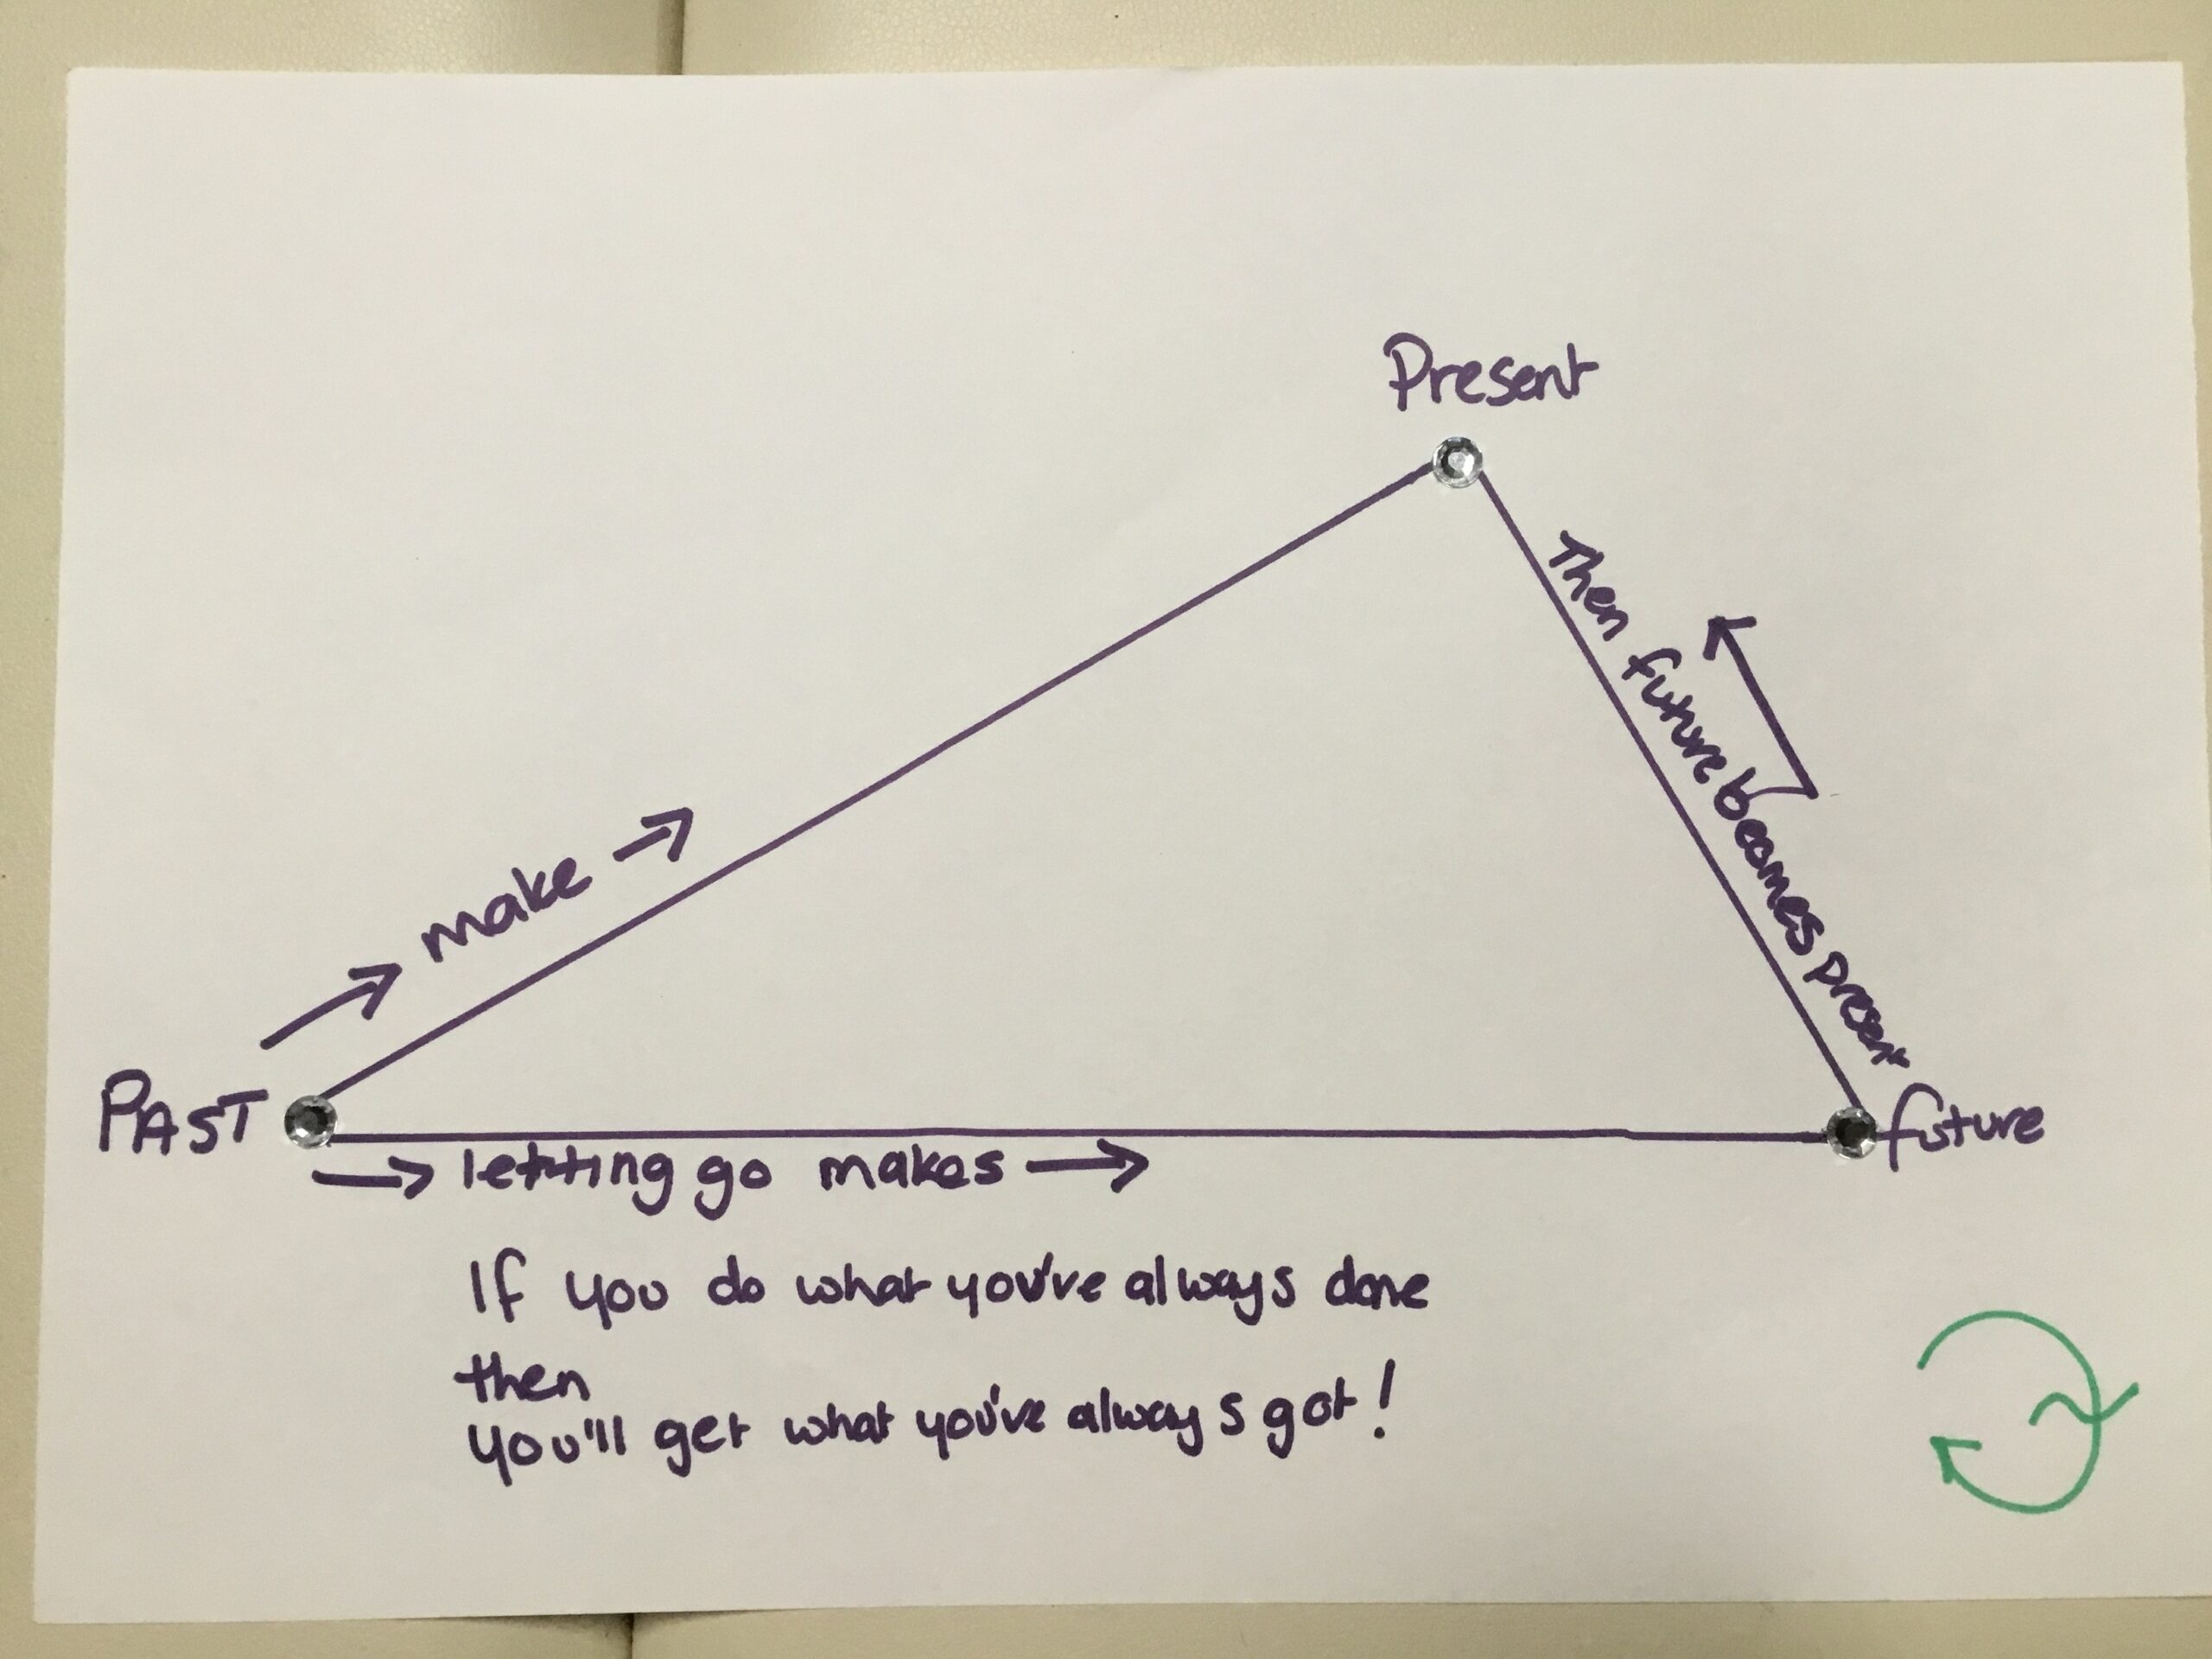 Present
Then future becomes present
make
PAST
future
letting go makes
If you do what you've always done
then
you'll get what you've always got!